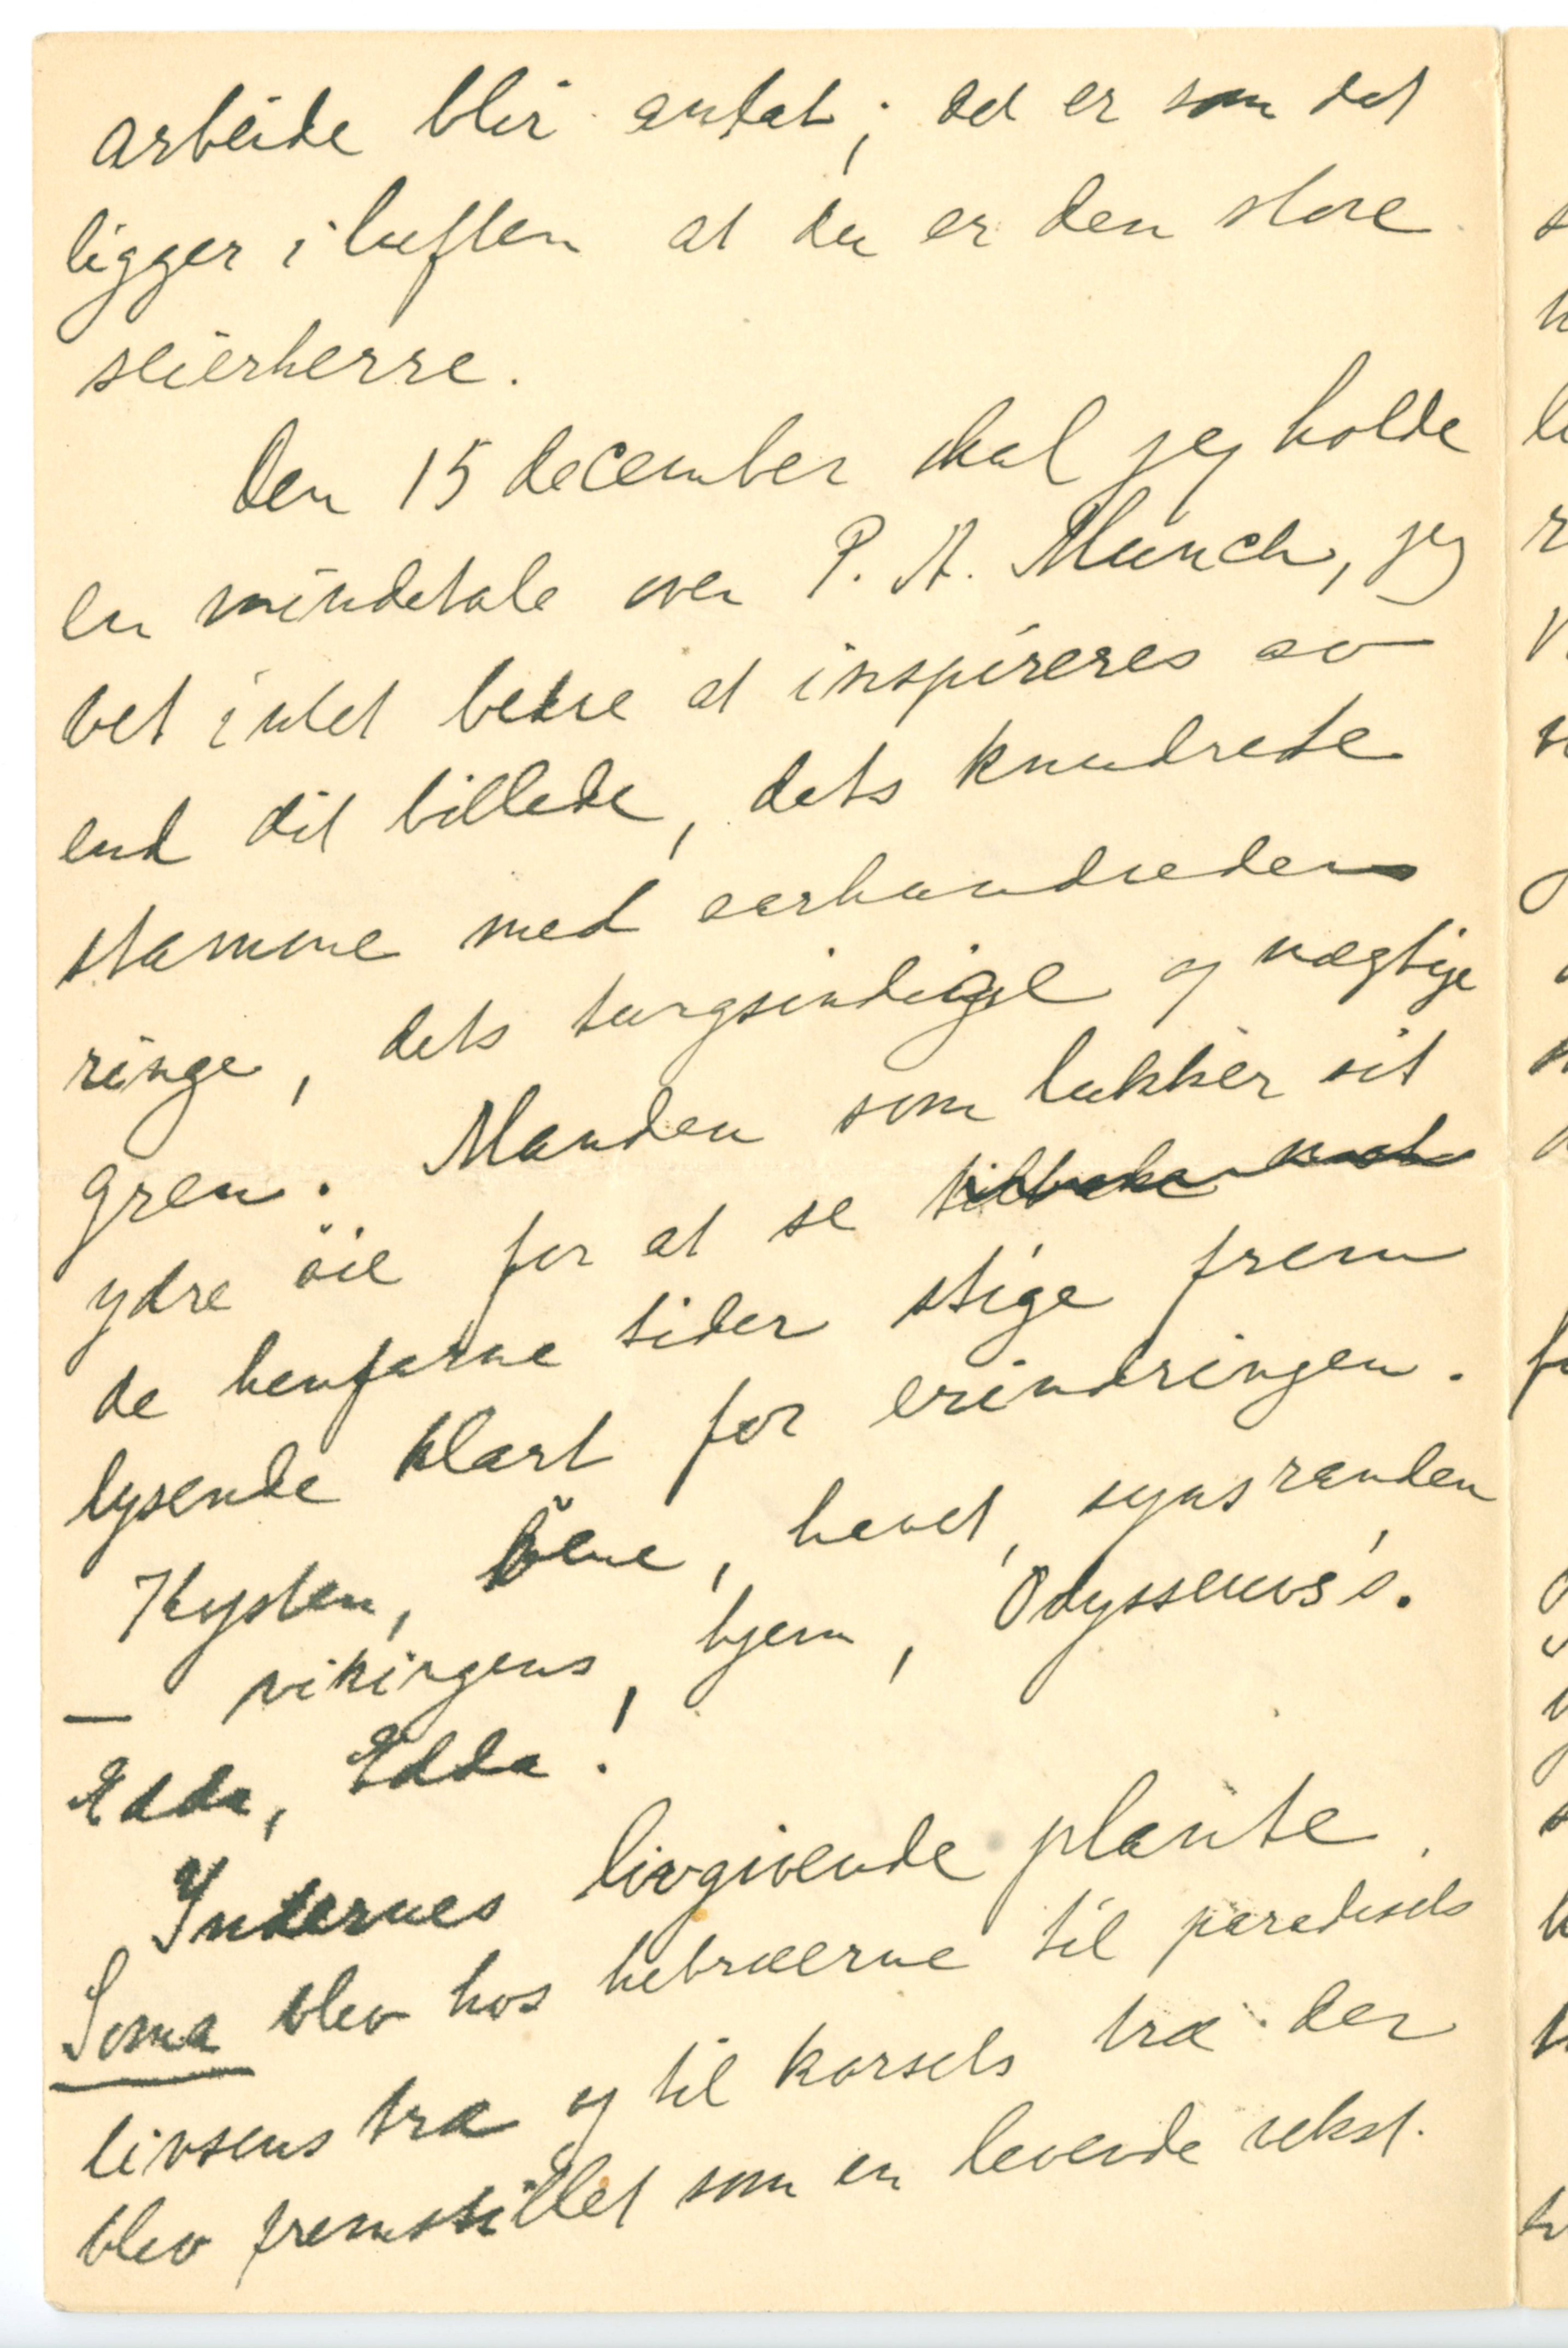 arbeide blir antat; det er som det
ligger i luften at du er den store
seierherre.
Den 15 december skal jeg holde
en mindetale over P. A. Munch, jeg
vet intet bedre at inspireres av
end dit billede, dets knudrede
stamme med aarhundreders
ringe, dets tungsindige og vægtige
gren. Manden som lukker sit
ydre öie for at se tilbake mot
de henfarne tider stige frem
lysende klart for erindringen.
Kysten, öene, havet, synsranden
– vikingens, hjem, Odysseus's.
Edda, Edda!
Indernes livgivende plante
Soma blev hos hebræerne til paradisets
livsens træ og til korsets træ der
blev fremstillet som en levende vekst.